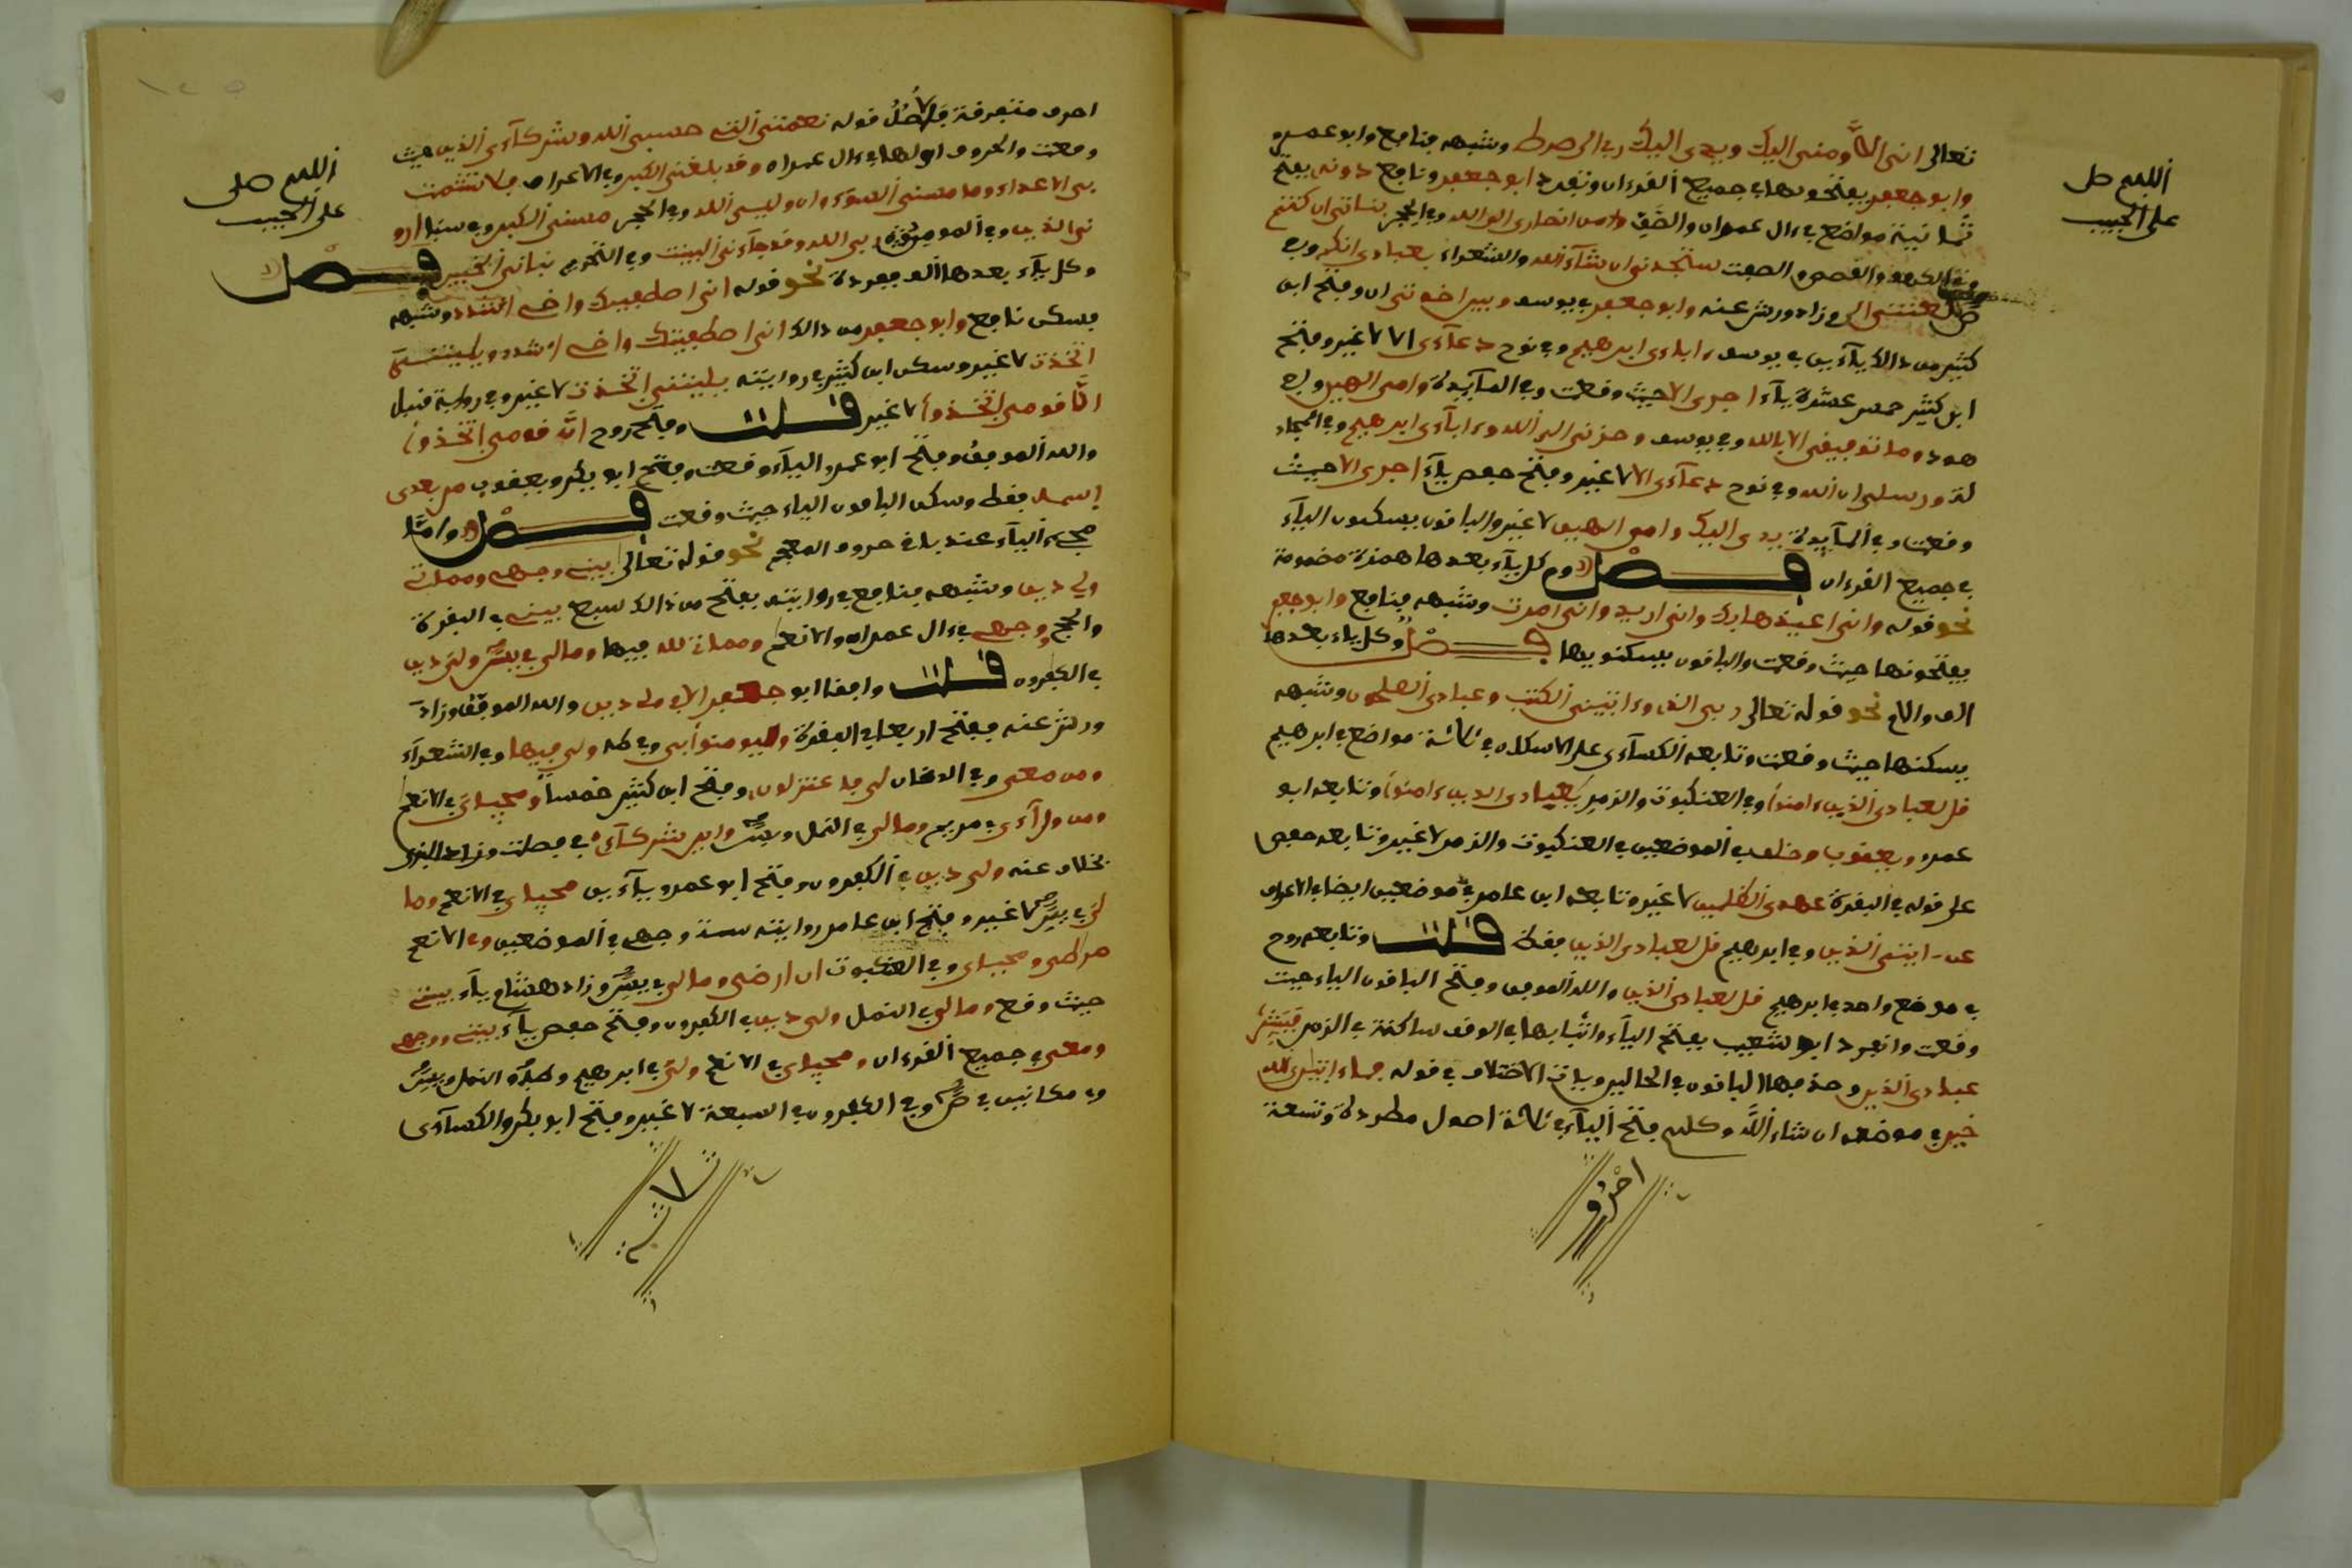 تعالى انى الا ومنى اليك ويدى اليك ربى الى صرط وشبهه فنافع وابو عمرو
وابو جعفر يفتحونها في جميع القرءان وتفرد ابو جعفر ونافع دونه بفتح
ثمانية مواضع في ءال عمران والصف من انصارى الى الله وفي الحجر بناتى ان كنتم
وفي الكهف والقصص والصفت ستجدنى ان شآء الله والشعراء بعبادى انكم وفي
ص لعنتى الى وزاد ورش عنه وابو جعفر في يوسف وبين اخوتى ان وفتح ابن
كثير من ذالك يآءين في يوسف ءاباءى ابرهيم وفي نوح دعآءى الا لا غير وفتح
ابن كثير خمس عشرة يآء اجرى الا حيث وقعت وفي المآيدة وامى الهين وفي
هود وما توفيقى الا بالله وفي يوسف وحزنى الى الله وءابآءى ابرهيم وفي المجاد
لة ورسلى ان الله وفي نوح دعآءى الا لا غير وفتح حفص يآء اجرى الا حيث
وقعت وفي المآيدة يدى اليك وامى الهين لا غير والباقون يسكنون اليآء
في جميع القرءان فصل وكل يآء بعدها همزة مضمومة
نحو قوله وانى اعيذها بك وانى اريد وانى امرت وشبهه فنافع وابو جعفر
يفتحونها حيث وقعت والباقون يسكنونها فصل وكل ياء بعدها
الف ولام نحو قوله تعالى ربى الذى وءاتينى الكتب وعبادى الصلحون وشبهه
يسكنها حيث وقعت وتابعه الكسآءى على الاسكان في ثلاثة مواضع في ابرهيم
قل لعبادى الذين ءامنوا وفي العنكبوت والزمر يعبادى الذين ءامنوا وتابعه ابو
عمرو ويعقوب وخلف في الموضعين في العنكبوت والزمر لا غير وتابعه حفص
على قوله في البقرة عهدى الظلمين لا غير وتابعه ابن عامر في موضعين ايضا في الاعراف
عن ءايتى الذين وفي ابرهيم قل لعبادى الذين فقط قلت وتابعه روح
في موضع واحد في ابرهيم قل لعبادى الذين والله الموفق وفتح الباقون الياء حيث
وقعت وانفرد ابو شعيب بفتح اليآء واثباتها في الوقف ساكنة في الزمر فبشر
عبادى الذين وحذفها الباقون في الحالين وياتى الاختلاف في قوله فما ءاتين الله
خير في موضعه ان شاء الله وكلهم فتح اليآء في ثلاثة اصول مطردة وتسعة
احرف
اللهم صل
على الحبيب
احرف متفرقة فالاصل قوله نعمتى التى حسبى الله وشركآءى الذين حيث
وقعت والحروف اولها في ءال عمران وقد بلغنى الكبر وفي الاعراف فلا تشمت
بى الاعداء وما مسنى السوء وان وليى الله وفي الحجر مسنى الكبر وفي سبا ارو
نى الذين وفي المومن ربى الله وقد جآءنى البينت وفي التحريم نبانى الخبير فصل
وكل يآء بعدها الف مفردة نحو قوله انى اصطفيتك واخى اشدد وشبهه
فسكن نافع وابو جعفر من ذالك انى اصطفيتك واخى اشدد ويليتنى
اتخذت لا غير وسكن ابن كثير في روايته يليتنى اتخذت لا غير وفي رواية قنبل
ان قومى اتخذوا لا غير قلت وفتح روح ان قومى اتخذوا
والله الموفق وفتح ابو عمرو اليآء حيث وقعت وفتح ابو بكر ويعقوب من بعدى
اسمه فقط وسكن الباقون الياء حيث وقعت فصل واما
مجىء اليآء عند باقى حروف المعجم نحو قوله تعالى بيتى وجهى ومماتى
ولى دين وشبهه فنافع في روايته بفتح من ذالك سبع بيتى في البقرة
والحج وجهى في ءال عمران والانعم ومماتى لله فيها ومالى في يس ولى دين
في الكفرون قلت وافقه ابو جعفر الا في ولى دين والله الموفق وزاد
ورش عنه ففتح اربعا في البقرة وليومنوا بى وفي طه ولى فيها وفي الشعرآء
ومن معى وفي الدخان لى فاعتزلون وفتح ابن كثير خمسا ومحياى في الانعم
ومن ورآءى في مريم ومالى في النمل ويس واين شركآءى في فصلت وزاد البزى
بخلاف عنه ولى دين في الكفرون وفتح ابو عمرو يآءين محياى في الانعم وما
لى في يس لا غير وفتح ابن عامر روايته ستة وجهى في الموضعين وفي الانعم
صرطى ومحياى وفي العنكبوت ان ارضى ومالى في يس وزاد هشام يآء بيتى
حيث وقع ومالى في النمل ولى دين في الكفرون وفتح حفص يآء بيتى ووجهى
ومعى في جميع القرءان ومحياى في الانعم ولى في ابرهيم وطه والنمل ويس
وفي مكانين في ص وفي الكفرون في السبعة لا غير وفتح ابو بكر والكسآءى
اللهم صل
على الحبيب